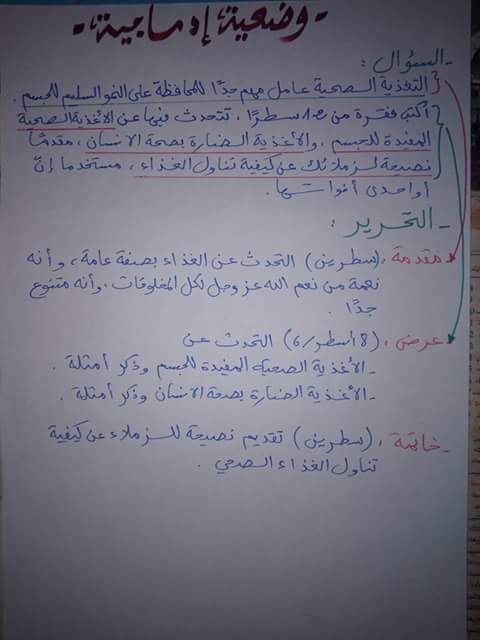 - وضعية إدماجية -
- السؤال :
التغذية الصحية عامل مهم جدًا للمحافظة على النمو السليم للجسم .
أكتب فقرة من 12 سطرًا ، تتحدث فيها عن الأغذية الصحية
المفيدة للجسم ، والأغذية الضارة بصحة الانسان ، مقدمًا
نصيحة لزملائك عن كيفية تناول الغذاء ، مستخدما إنّ
أو احدى أخواتها .
- التحرير :
- مقدمة : (سطرين) التحدث عن الغذاء بصفة عامة ، و أنه
نعمة من نعم الله عز وجل لكل المخلوقات ، وأنه متنوع
جدًا .
- عرض : (8 أسطر/6) التحدث عن
- الأغذية الصحية المفيدة للجسم وذكر أمثلة .
- الأغذية الضارة بصحة الانسان وذكر أمثلة .
- خاتمة : (سطرين) تقديم نصيحة للزملاء عن كيفية
تناول الغذاء الصحي .